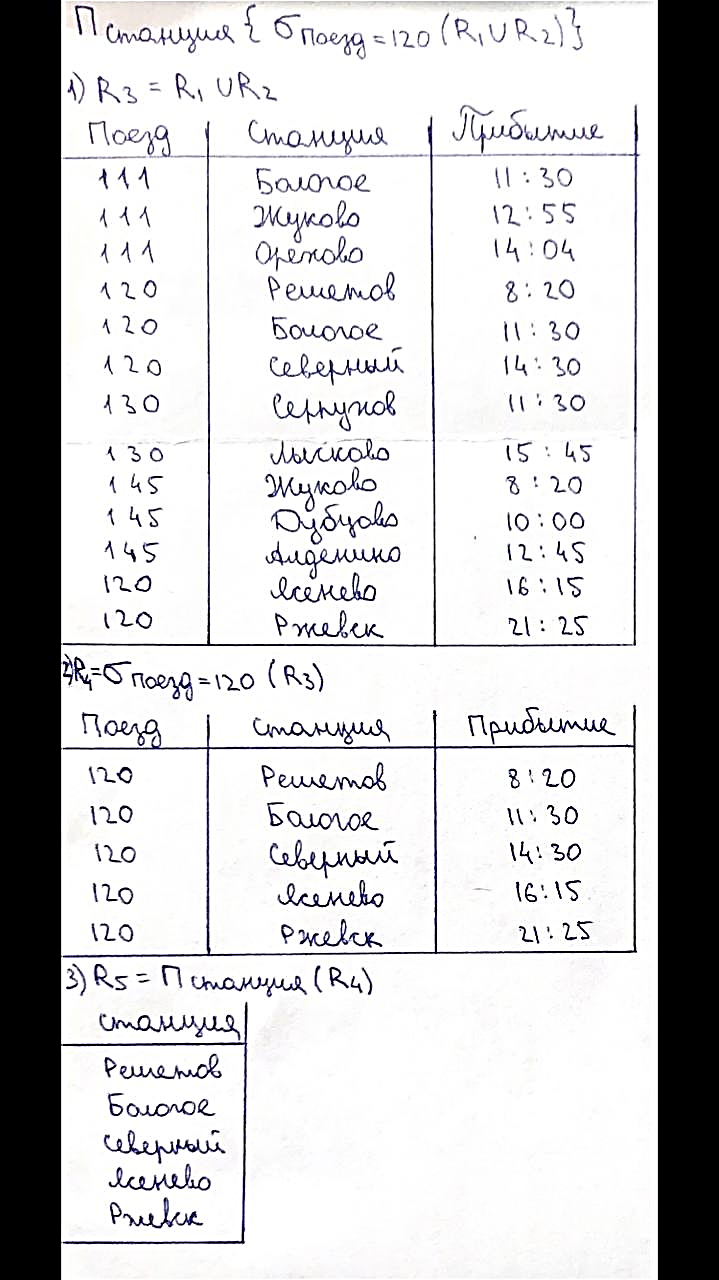 П станция { σ Поезд = 120 (R₁ ∪ R₂)}
1) R₃ = R₁ ∪ R₂
Поезд Станция Прибытие
111 Бологое 11:30
111 Жуково 12:55
111 Орехово 14:04
120 Решетов 8:20
120 Бологое 11:30
120 Северный 14:30
130 Серпухов 11:30
130 Лысково 15:45
145 Жуково 8:20
145 Дубцово 10:00
145 Алденино 12:45
120 Ясенево 16:15
120 Ржевск 21:25
2) R₄ = σ Поезд = 120 (R₃)
Поезд станция Прибытие
120 Решетов 8:20
120 Бологое 11:30
120 Северный 14:30
120 Ясенево 16:15
120 Ржевск 21:25
3) R₅ = П станция (R₄)
станция
Решетов
Бологое
Северный
Ясенево
Ржевск